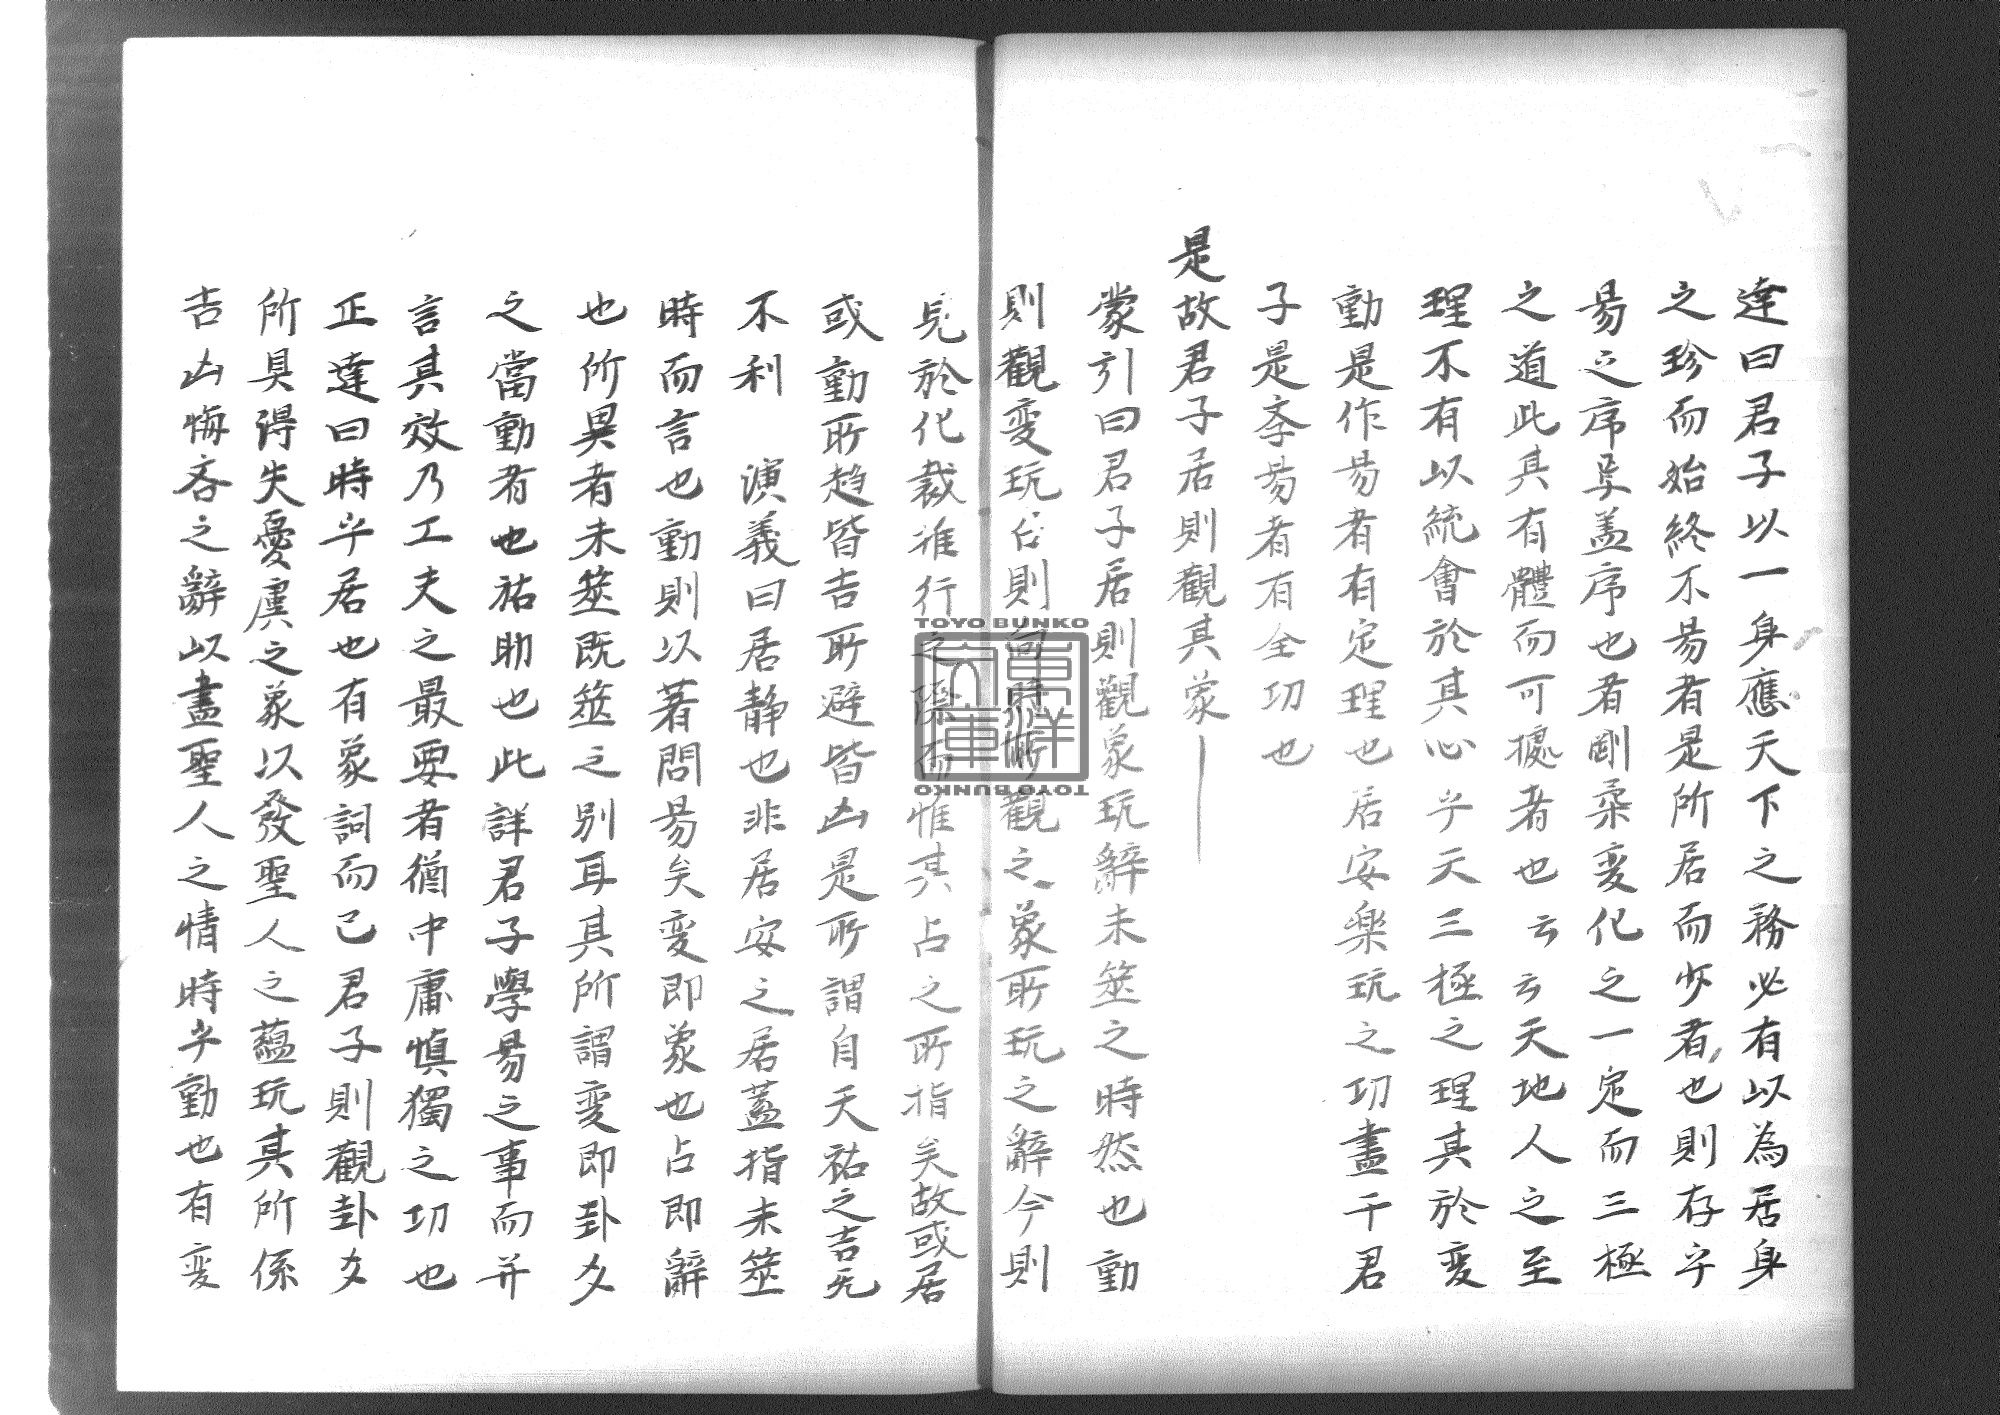 達曰君子以一身應天下之務必有以為居身
之珍而始終不易者是所居而安者也則存乎
易之序是盖序也者剛柔変化之一定而三極
之道此其有體而可據者也云云天地人之至
理不有以統會於其心乎天三極之理其於変
動是作易者有定理也居安樂玩之功盡于君
子是孝易者有全功也
是故君子居則觀其象
蒙引曰君子居則觀象玩辭未筮之時然也動
則觀変玩占則向時所觀之象所玩之辭今則
見於化裁推行之際而惟其占之所指矣故或居
或動所趋皆吉所避皆凶是所謂自天祐之吉无
不利 演義曰居静也非居安之居蓋指未筮
時而言也動則以著問易矣変即象也占即辭
也所異者未筮既筮之别耳其所謂変即卦爻
之當動者也祐助也此詳君子學易之事而并
言其效乃工夫之最要者猶中庸慎獨之功也
正達曰時乎居也有象詞而已君子則觀卦爻
所具得失憂虞之象以發聖人之蘊玩其所係
吉凶悔吝之辭以盡聖人之情時乎動也有変
TOYO BUNKO
東洋文庫
TOYO BUNKO